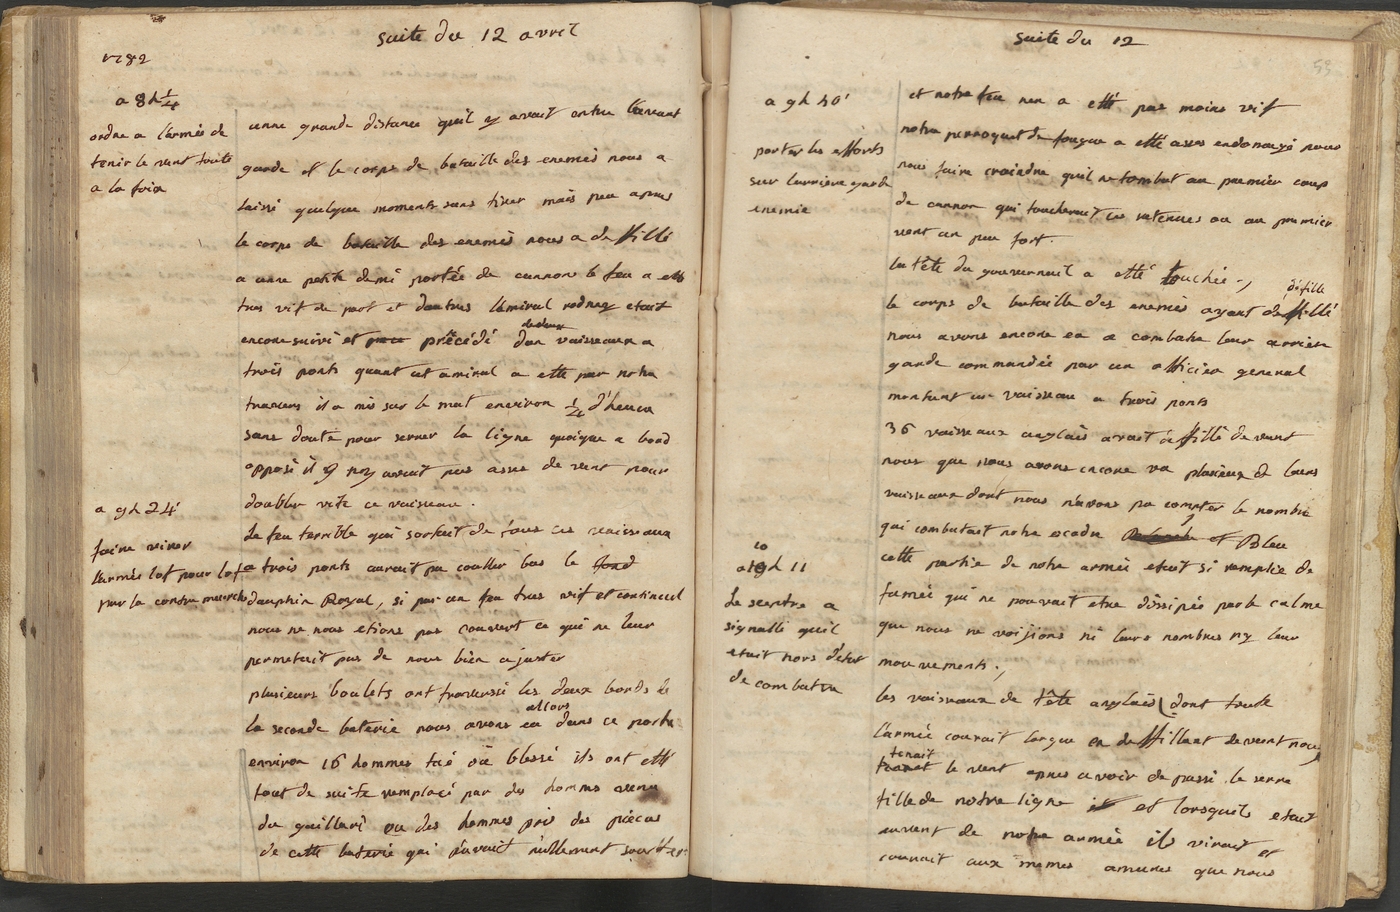 suite du 12 avril
1782
a 8h 1/4
ordre a l'armée de
tenir le vent toute
a la foix
a 9h 24'
faire virer
l'armée lof pour lof
par la contre marche
unne grande distance quil y avait entre l'avant
garde et le corps de bataille des enemis nous a
laissé quelque moments sans tirer mais peu apres
le corps de bataille des enemis nous a deffillé
a unne petite demi portée de cannon le feu a etté
tres vif de part et dautres lamiral rodney etait
encore suivi et précédé de deux vaisseaux a
trois ponts quant cet amiral a etté par notre
travers il a mis sur le mat environ 1/4 d'heure
sans doute pour serrer la ligne quoique a bord
opposé il y ny avait pas assés de vent pour
doubler vite ce vaisseau.
Le feu terrible qui sortait de tous ces vaisseaux
a trois ponts aurait pu couller bas le fond
dauphin Royal, si par un feu tres vif et continuel
nous ne nous etions pas couvert ce qui ne leur
permetait pas de nous bien ajuster
plusieurs boulets ont traverssé les deux bords de
la seconde baterie nous avons eu allors dans ce poste
environ 16 hommes tué où blessé ils ont etté
tout de suite remplacé par des hommes venu
du gaillard ou des hommes pris des pièces
de cette baterie qui pouvait nullement
suite du 12
53
a 9h 40'
porter les efforts
sur larriere garde
enemie
10
a h 11
Le sceptre a
signallé quil
etait hors d'état
de combattre
et notre feu nen a etté pas moins vif
notre perroquet de fougue a etté asses endomagé pour
nous faire craindre quil ne tombat au premier coup
de cannon qui toucherait ces retenues ou au premier
vent un peu fort.
la tête du gouvernail a etté touchée.,
défillé
le corps de bataille des enemis ayant deffillé
nous avons encore eu a combatre leur arriere
garde commandée par un officier general
montant un vaisseau a trois ponts
36 vaisseaux anglais avait deffillé devent
nous que nous avons encore vu plusieurs de leurs
vaisseaux dont nous n'avons pu compter le nombre
qui combatait notre escadre Bleu
cette partie de notre armée etait si remplie de
fumée qui ne pouvait etre dissipée par le calme
que nous ne voiyions ni leurs nombres ny leur
mouvements.,
les vaisseaux de tête anglais (dont toute
l'armée courait largue en deffillant devent nous)
tenait
le vent apres avoir de passé le serre
fille de notre ligne et lorsquils etait
auvent de notre armée ils virait et
courait aux memes amures que nous